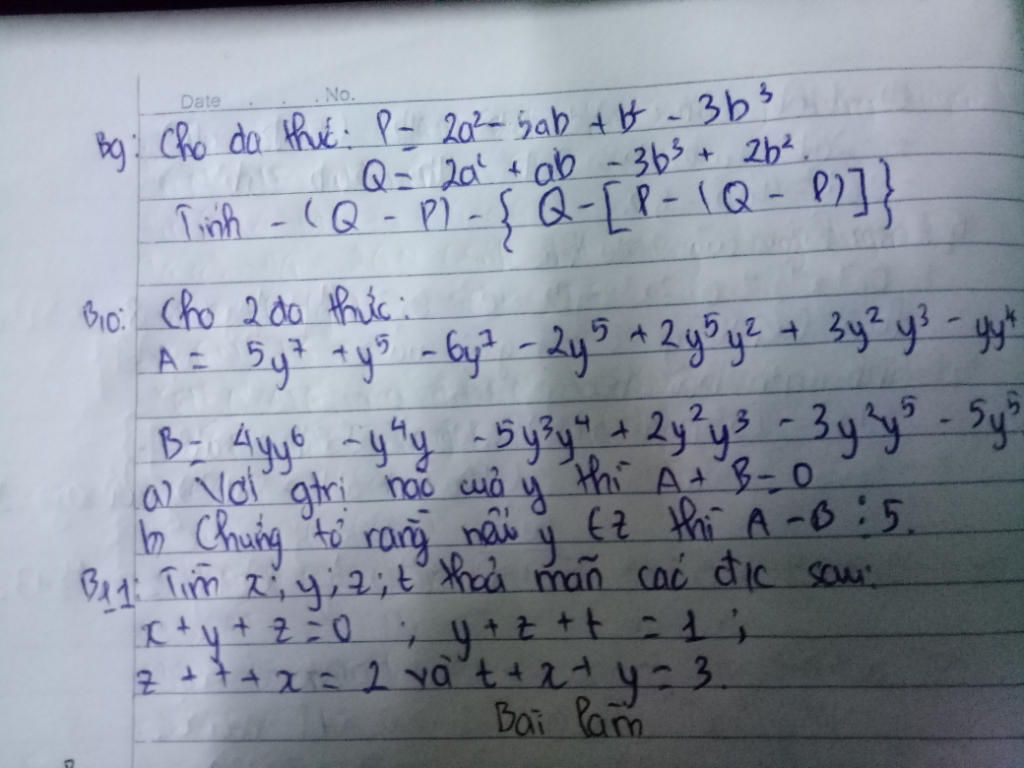 Date . . . No.
B9: Cho đa thức: P = 2a² - 5ab + - 3b³
Q = 2a² + ab - 3b³ + 2b².
Tính - (Q - P) - { Q - [P - (Q - P)]}
B10: Cho 2 đa thức:
A = 5y⁷ + y⁵ - 6y⁷ - 2y⁵ + 2y⁵y² + 3y²y³ - yy⁴
B = 4yy⁶ - y⁴y - 5y³y⁴ + 2y²y³ - 3y²y⁵ - 5y⁵
a) Với gtrị nào của y thì A + B = 0
b) Chứng tỏ rằng nếu y ∈ Z thì A - B ⋮ 5.
B11: Tìm x; y; z; t thoả mãn các đk sau:
x + y + z = 0 ; y + z + t = 1 ;
z + t + x = 2 và t + x + y = 3.
Bài làm